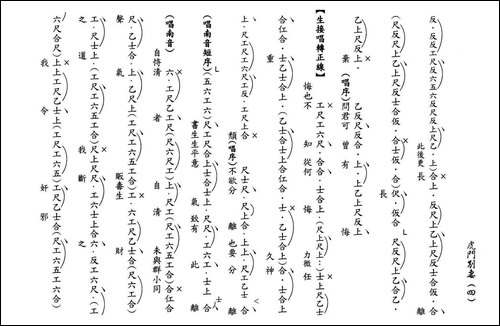 虎門別
反．反反工尺工六五六反反上尺乙．上）合上．反上尺乙上尺反上尺士合仮．合
此後更長
（尺反尺上乙上尺反士合仮．合士仮．合）伬．仮合　尺反尺上乙合乙．
長
乙上尺反上．　乙反尺反合．上．上乙上尺反上
棄（唱序）問君可曾有悔
【生接唱轉正線】工尺工六尺．合合．上（尺上尺上：）士上尺乙士
悔也不知從何悔　力微任
合仜合．士（乙士合士上合仜合．士．乙士合）士合士上
重　久神
上．尺工尺工六工反．工尺上合　尺士尺．尺上合．上上．尺工乙士
頹（唱序）不欲分離也要分離
（唱南音短序）（五六工六）工尺工尺合上士合上上．尺尺．工六工．士上合
書生生平意氣致有此離
（唱南音）六．工尺乙工六（尺六尺工）尺工．六（工六五工合）合仜合
自恃清者自清　未與群小同
尺．乙士合．上．乙尺上（工尺工六五工合）乙士合（尺六工合）
聲氣　販壽生財
工．尺士上．（工尺工六五六工合）尺上尺尺．工六士上合　六．反工六尺．（工
之道　我斷之
六尺合尺）上上工尺乙士上（工尺工六五）工尺乙士合（尺工六五工六合）
我令奸邪